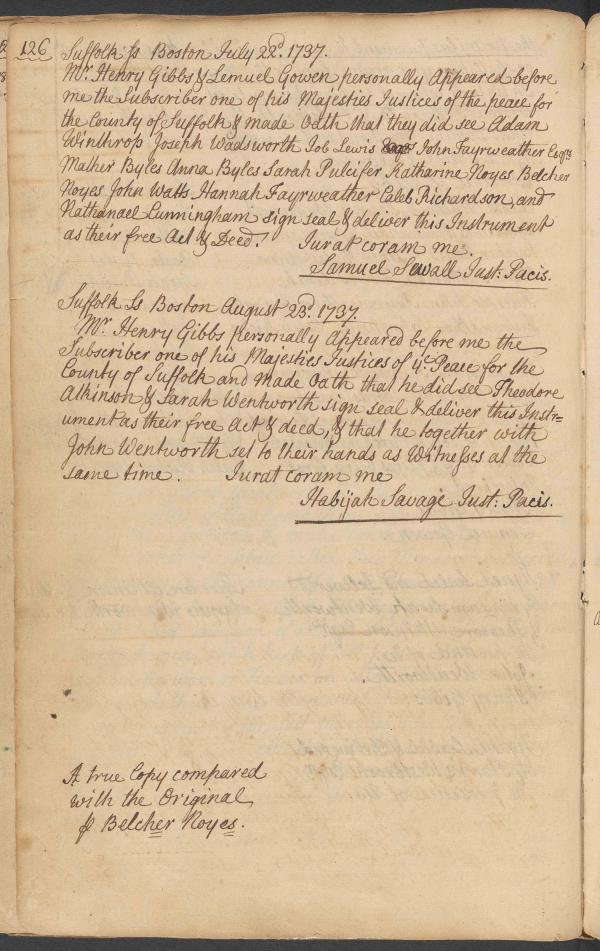 126
Suffolk ss Boston July 22d. 1737.
Mr. Henry Gibbs & Lemuel Gowen personally Appeared before
me the Subscriber one of his Majesties Justices of the peace for
the County of Suffolk & made Oath that they did see Adam
Winthrop Joseph Wadsworth Job Lewis John Fayrweather Esqrs
Mather Byles Anna Byles Sarah Pulcifer Katharine Noyes Belcher
Noyes John Watts Hannah Fayrweather Caleb Richardson and
Nathanael Cunningham sign seal & deliver this Instrument
as their free Act & Deed. Jurat coram me.
Samuel Sewall Just: Pacis.
Suffolk Ss Boston August 23d. 1737.
Mr. Henry Gibbs personally Appeared before me the
Subscriber one of his Majesties Justices of ye. Peace for the
County of Suffolk and made Oath that he did see Theodore
Atkinson & Sarah Wentworth sign seal & deliver this Instr=
ument as their free Act & deed, & that he together with
John Wentworth set to their hands as Witnesses at the
same time. Jurat coram me
Habijah Savage Just: Pacis.
A true Copy compared
with the Original
Belcher Noyes.